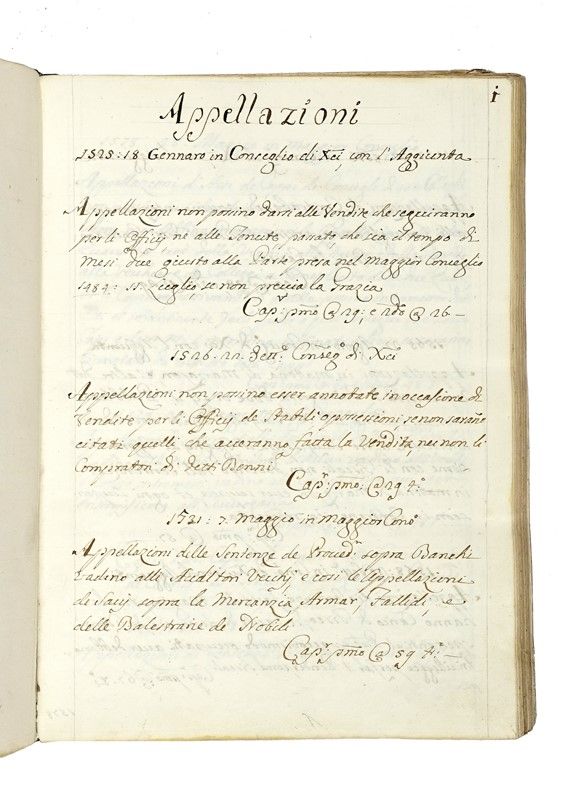 1
Appellazioni
1525: 18 Gennaro in Conseglio di Xci, con l'Aggiunta
Appellazioni non possino darsi alle Vendite che seguiranno
per li Officij ne alle Tenute, passato, che sia il tempo di
mesi due giusto alla Parte presa nel maggior Conseglio
1484: 11 Luglio, se non precia la Grazia
Cap:r pmo @ 29; e 2do @ 26 –
1526. 22. Conseg:o di Xci
Appellazioni non possino esser annotate in occasione di
Vendite per li Officij de Stabili o possessioni se non sarãno
citati quelli che averanno fatta la Vendita, nec non li
Compratori di detti Benni
Cap:r pmo: @ 29 t:o
7. Maggio in Maggior Cons:o
Appellazioni delle Sentenze de Proved:ri sopra Banchi
Vadino alli Auditori Vecchj, e cosi le Appellazioni
de Savij sopra la Mercanzia, Armar, Fallidi, e
delle Balestrarie de Nobili
Cap:r pmo @ 59 t:o